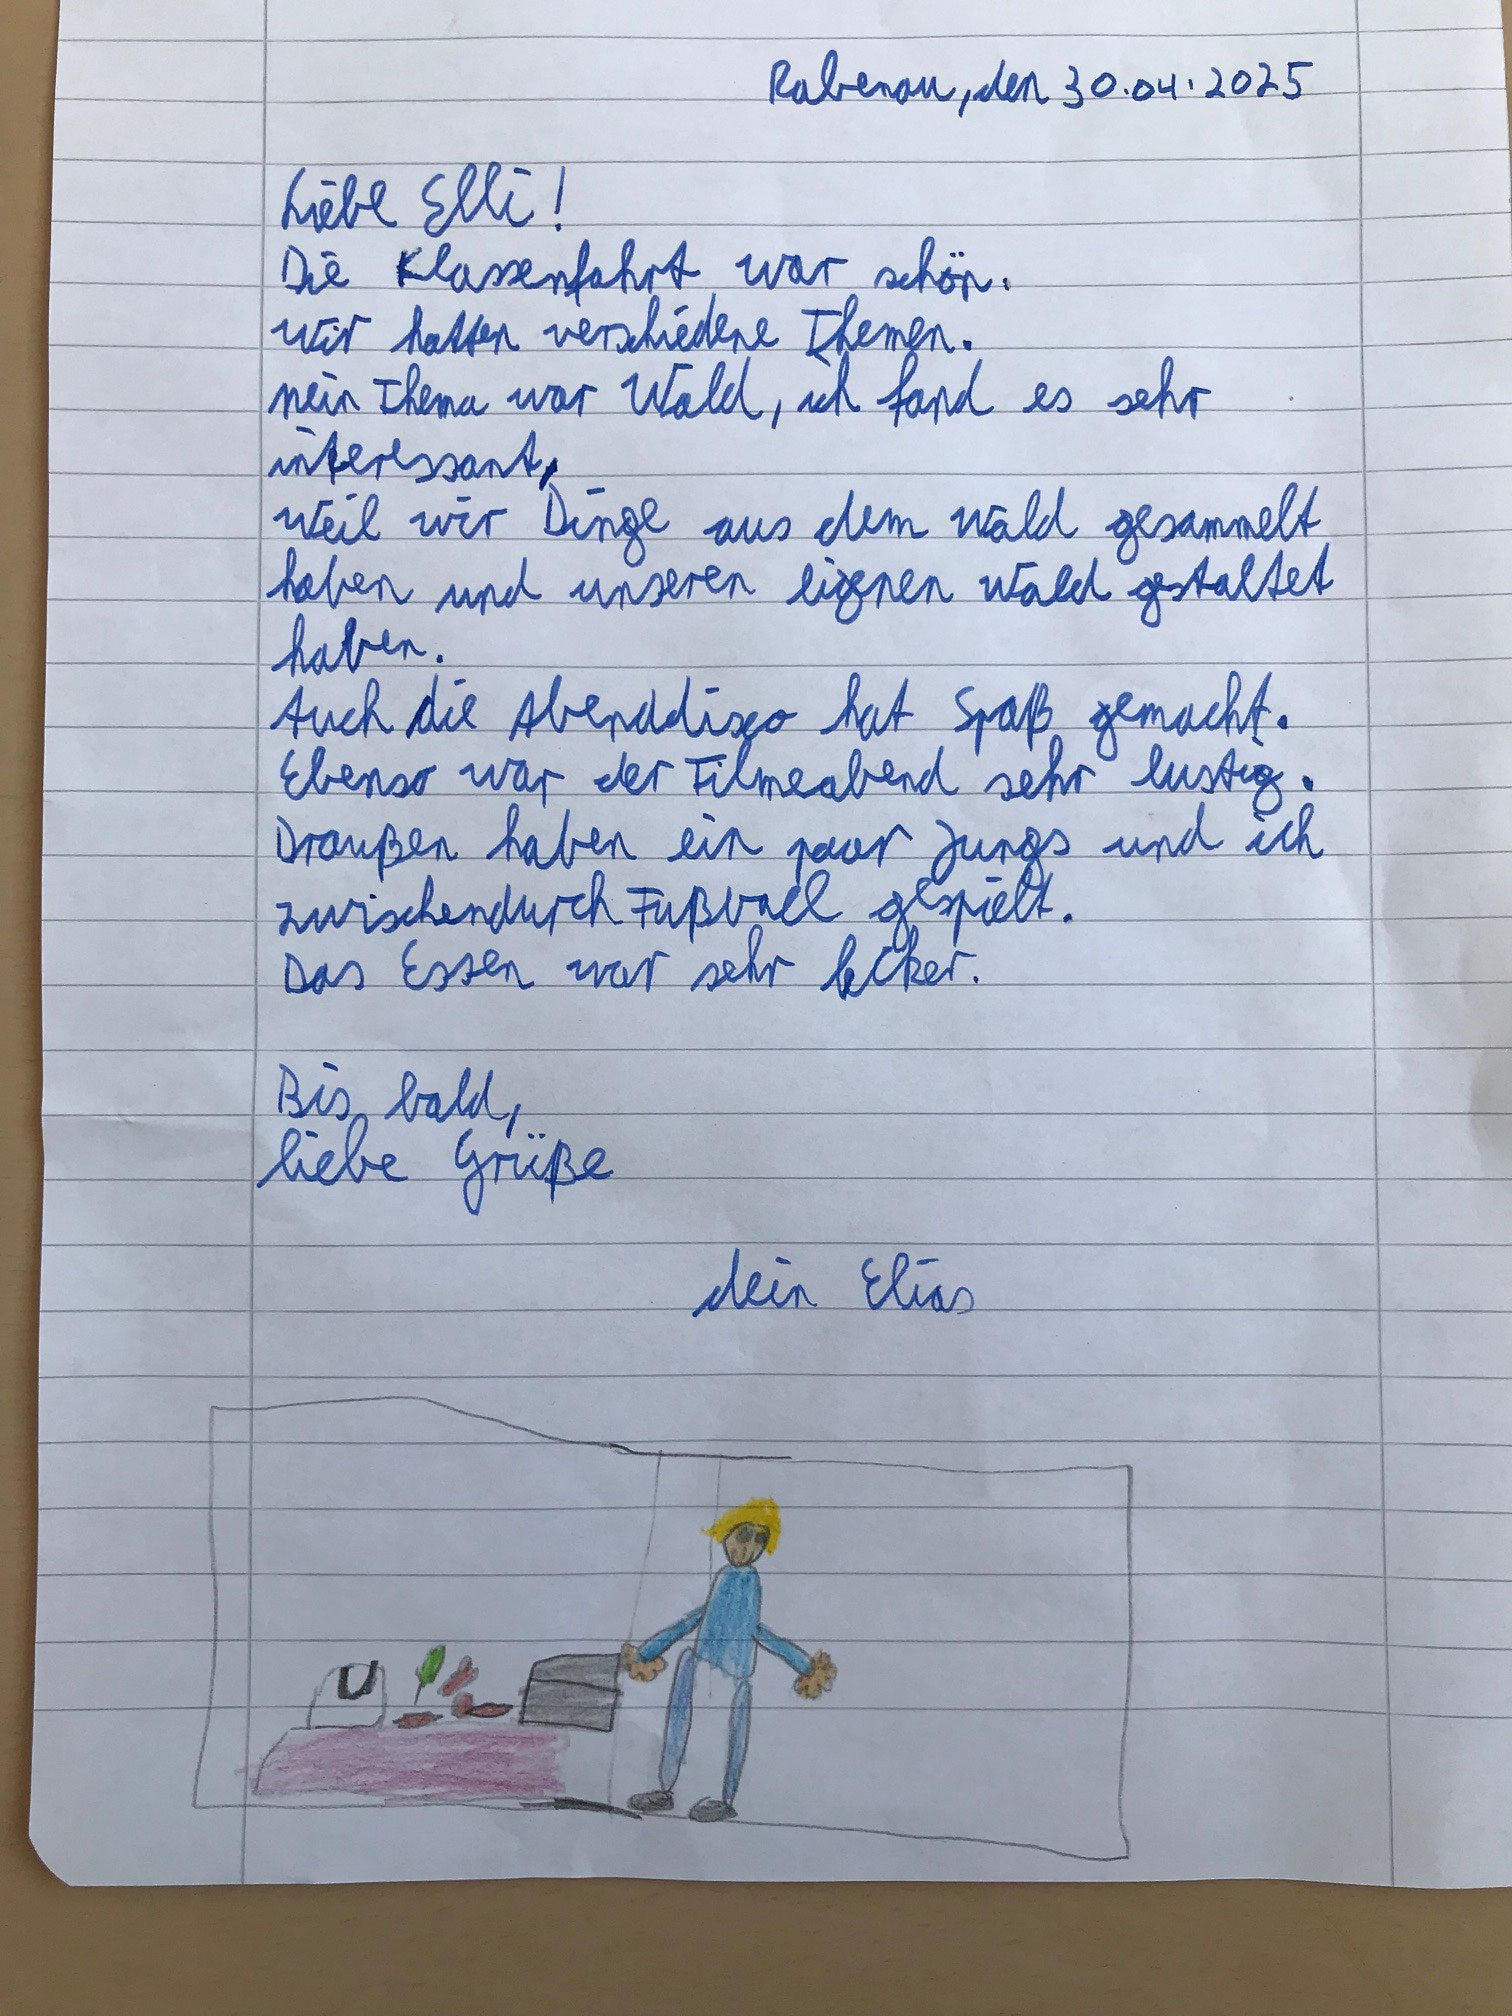 Rabenau, den 30.04.2025
Liebe Elli!
Die Klassenfahrt war schön.
Wir hatten verschiedene Themen.
mein Thema war Wald, ich fand es sehr
interessant,
Weil wir Dinge aus dem Wald gesammelt
haben und unseren eignen Wald gestaltet
haben.
Auch die Abenddisco hat Spaß gemacht.
Ebenso war der Filmeabend sehr lustig.
Draußen haben ein paar Jungs und ich
zwischendurch Fußball gespielt.
Das Essen war sehr lecker.
Bis bald,
liebe Grüße
dein Elias